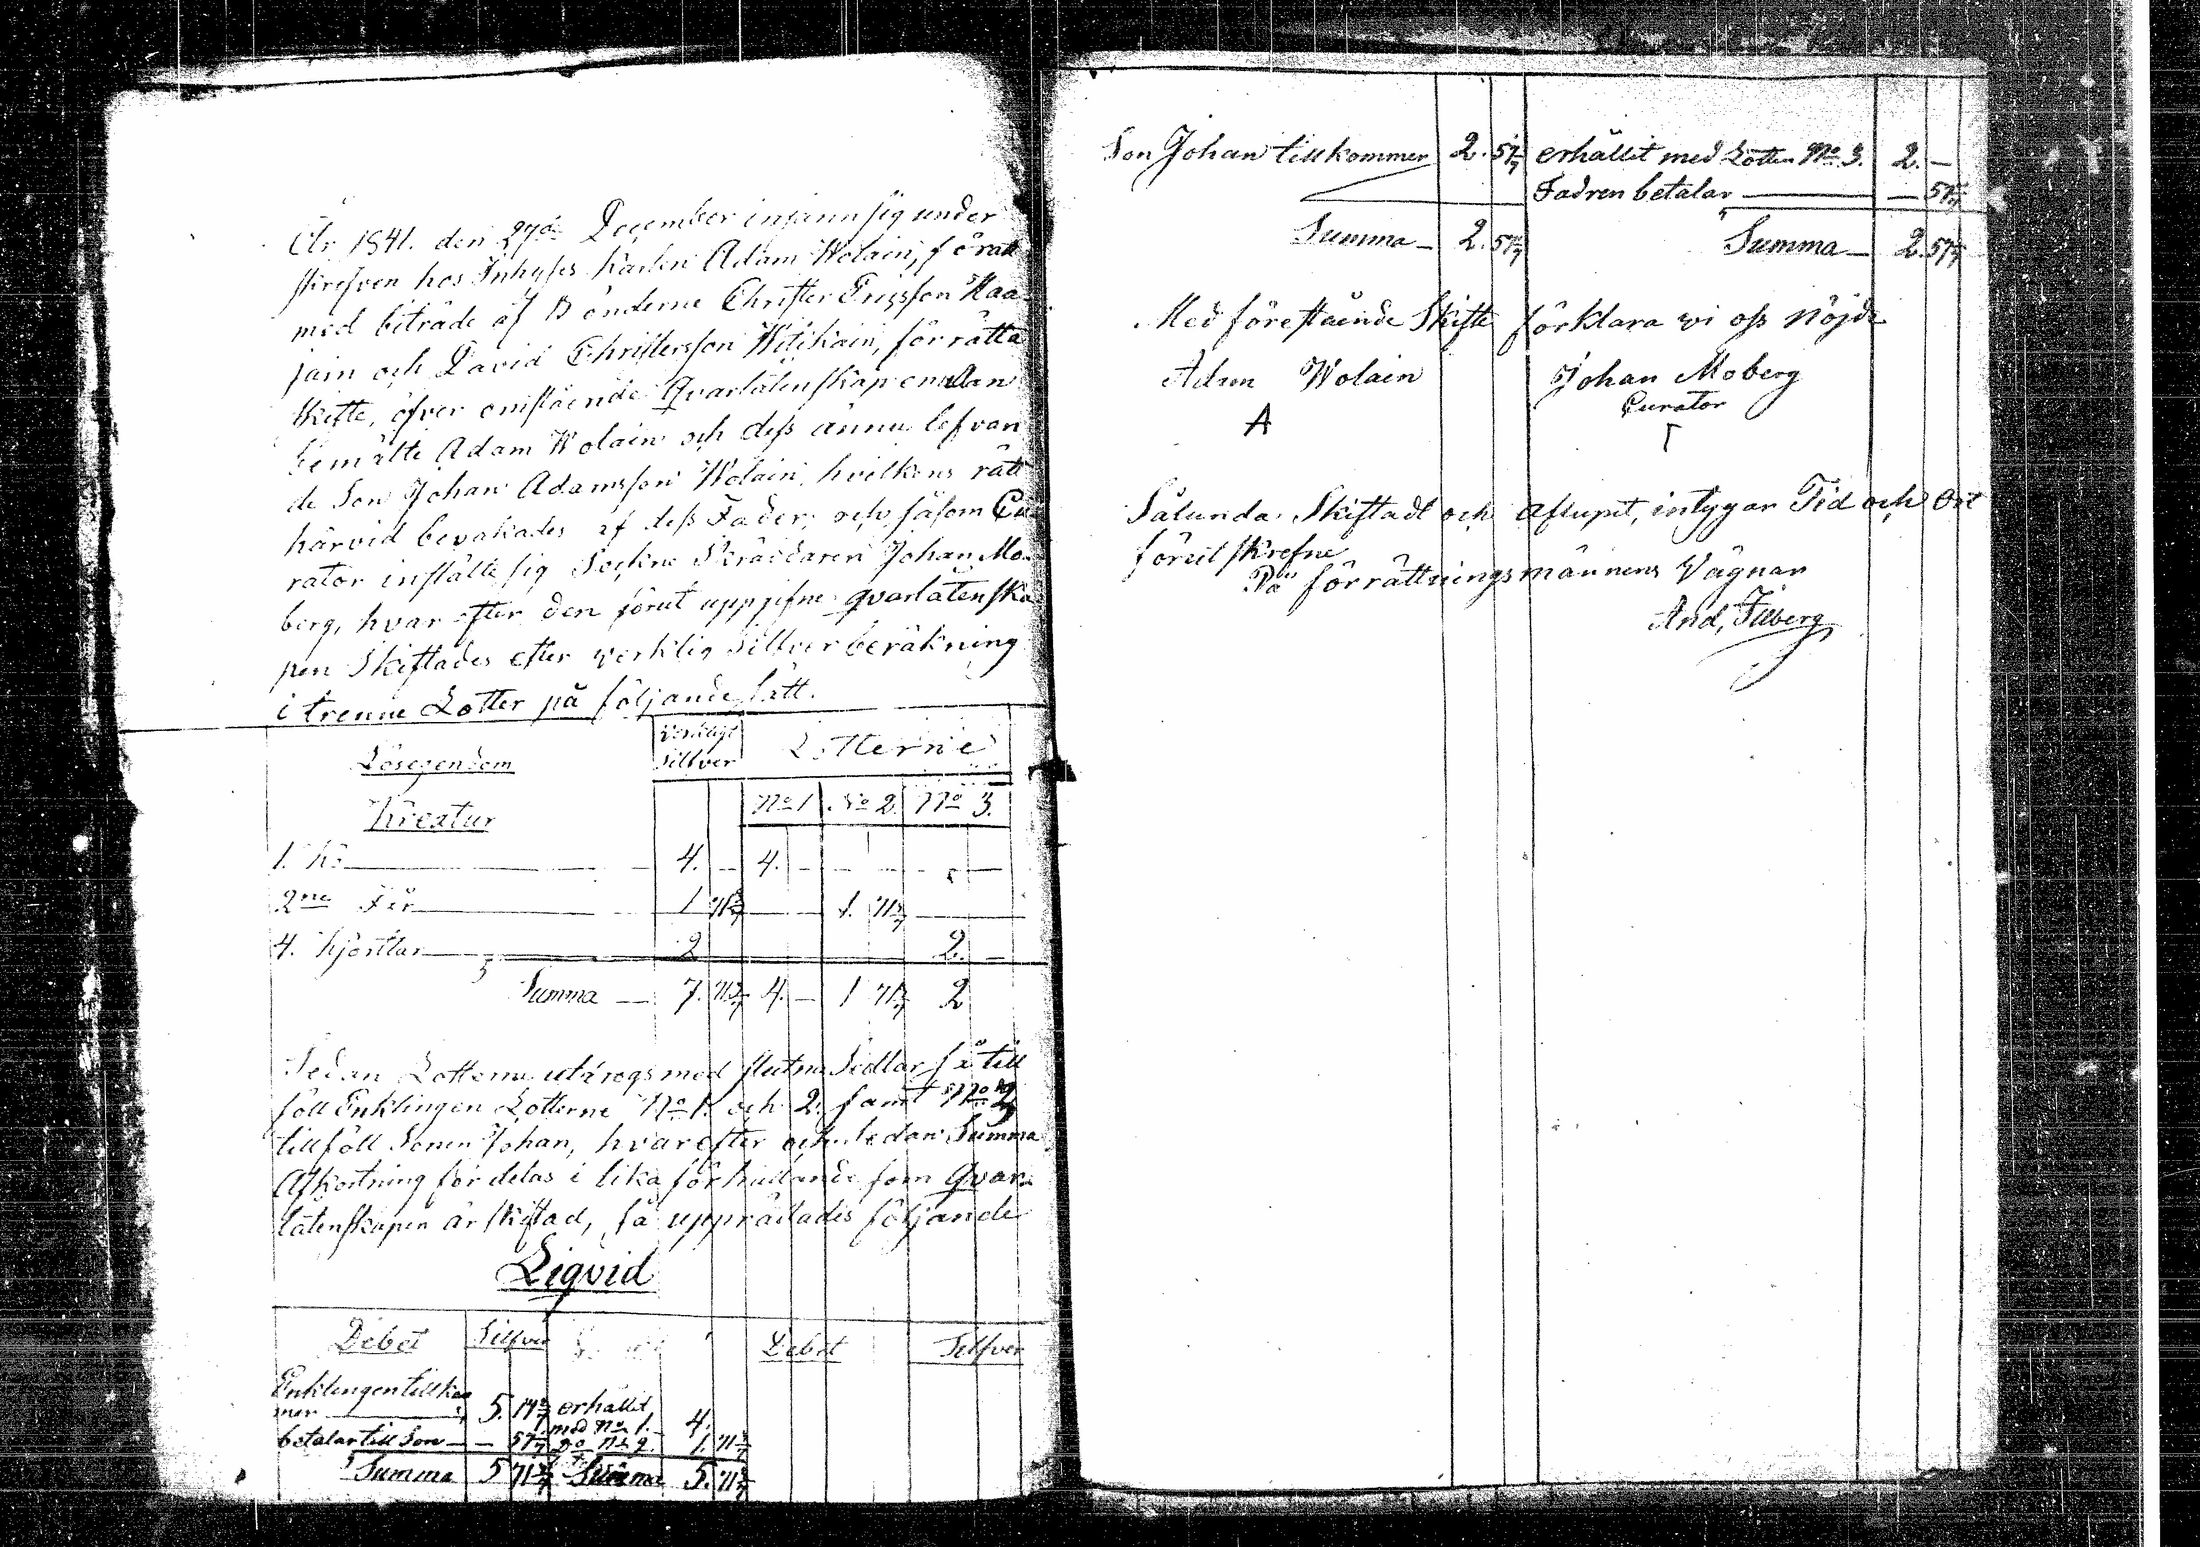 År 1841. den 27de December infann sig under
skrefven hos Inhyses karlen Adam Wolain, för att
med biträde af Bönderne Christer Ersson Maa
jain och David Christersson Witikain, förrätta
skifte, öfver omstående Qvarlåtenskap emellan
bemälte Adam Wolain och dess ännu lefvan
de Son Johan Adamsson Wolain, hvilkens rätt
härvid bevakades af dess Fader, och såsom Cu
rator inställte sig Sockne Skräddaren Johan Mo
berg, hvarefter den förut uppgifne qvarlåtenska
pen Skiftades efter verklig Silfver beräkning
i trenne Lotter på följande sätt.
Lösegendom Verkligt Silfver Lotterne
Kreatur No 1 No 2. No 3.
1. Ko 4. — 4. — — — — —
2ne Får 1 71 3/7 — — 1. 71 3/7 —
4. Kjortlar 2 2. —
Summa — 7. 71 3/7 4. — 1 71 3/7 2
Sedan Lotterne utdrogs med slutna Sedlar så till
föll Enklingen Lotterne No 1. och 2. samt No 3
tillföll Sonen Johan, hvarefter och sedan Summa
Afkortning fördelas i lika förhållande som Qvar
låtenskapen är skiftad, så upprättades följande
Liqvid
Debet Silfver Debet Silfver
Enklingen tillkom
mer 5. 14 2/7 erhållit
med No 1. 4.
betalar till Son — — 57 1/7 do No 2. 1. 71 3/7
Summa 5 71 3/7 Summa 5. 71 3/7
Son Johan tillkommer 2. 57 1/7 erhållit med Lotten No 3. 2. —
Fadren betalar — — 57 1/7
Summa — 2. 57 1/7 Summa — 2. 57 1/7
Med förestående Skifte förklara vi oss nöjde
Adam Wolain Johan Moberg
Curator
A
Sålunda Skiftadt och aflupit, intygar Tid och Ort
förut skrefne
På förrättningsmännens Vägnar
And, Filberg